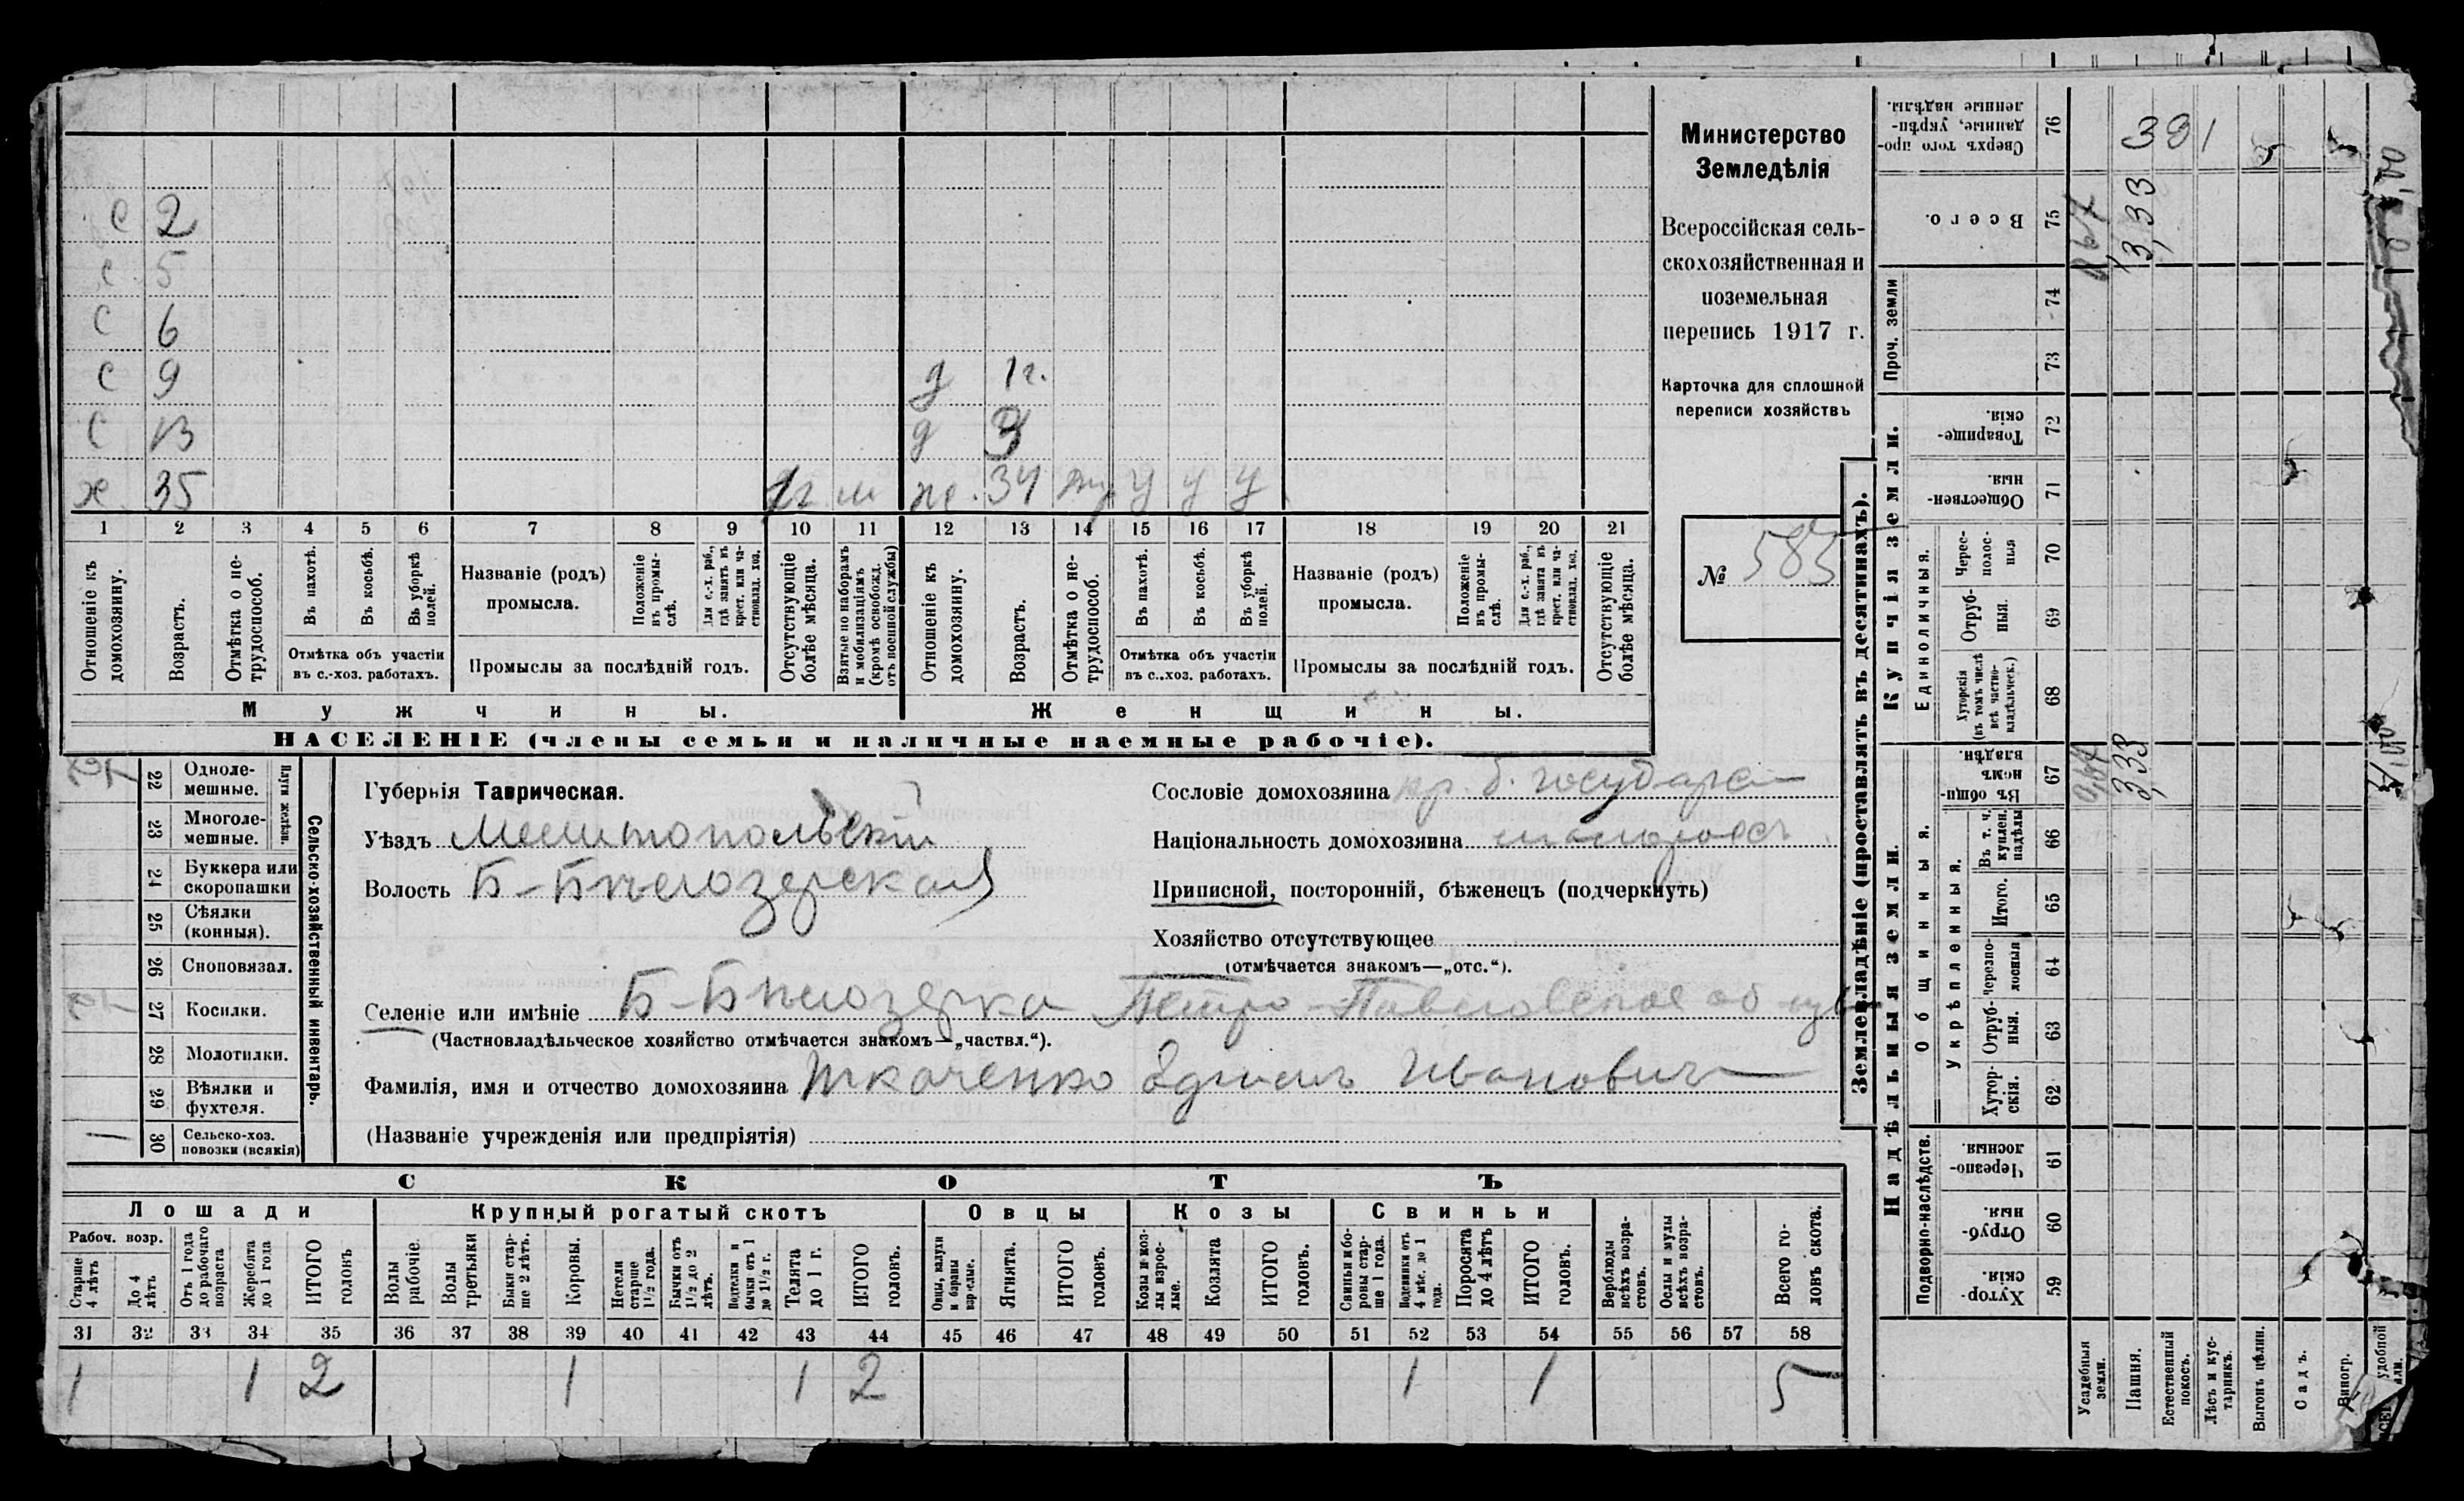 с 2
с 5
с 6
с 9 д 1 г.
с 13 д 3
х 35 м ж. 34 у у у
1 2 3 4 5 6 7 8 9 10 11 12 13 14 15 16 17 18 19 20 21
Отношеніе къ домохозяину.
Возрастъ.
Отмѣтка о не-трудоспособ.
Въ пахотѣ.
Въ косьбѣ.
Въ уборкѣ полей.
Отмѣтка объ участіи
въ с.-хоз. работахъ.
Названіе (родъ)
промысла.
Положеніе въ промы-слѣ.
Для с.-х. раб., гдѣ занятъ въ крест. или ча-стновлад. хоз.
Промыслы за послѣдній годъ.
Отсутствующіе болѣе мѣсяца.
Взятые по наборамъ и мобилизаціямъ (кромѣ освобожд. отъ военной службы)
Отношеніе къ домохозяину.
Возрастъ.
Отмѣтка о не-трудоспособ.
Въ пахотѣ.
Въ косьбѣ.
Въ уборкѣ полей.
Отмѣтка объ участіи
въ с..хоз. работахъ.
Названіе (родъ)
промысла.
Положеніе въ промы-слѣ.
Для с.-х. раб., гдѣ занята въ крест. или ча-стновлад. хоз.
Промыслы за послѣдній годъ.
Отсутствующіе болѣе мѣсяца.
Мужчины.
Женщины.
НАСЕЛЕНІЕ (члены семьи и наличные наемные рабочіе).
Министерство
Земледѣлія
Всероссійская сель-
скохозяйственная и
поземельная
перепись 1917 г.
Карточка для сплошной
переписи хозяйствъ
№ 583
Сельско-хозяйственный инвентарь.
Плуги желѣзн.
22 Одноле-мешные.
23 Многоле-мешные.
24 Буккера или скоропашки
25 Сѣялки (конныя).
26 Сноповязал.
27 Косилки.
28 Молотилки.
29 Вѣялки и фухтеля.
30 Сельско-хоз. повозки (всякія) 1
Губернія Таврическая.
Уѣздъ Мелитопольскій
Волость Б-Бѣлозерская
Селеніе или имѣніе Б-Бѣлозерка Петро-Павловское об
(Частновладѣльческое хозяйство отмѣчается знакомъ—„частвл.“).
Фамилія, имя и отчество домохозяина Ткаченко Иванович
(Названіе учрежденія или предпріятія)
Сословіе домохозяина кр. б. государс
Національность домохозяина малоросъ
Приписной, посторонній, бѣженецъ (подчеркнуть)
Хозяйство отсутствующее
(отмѣчается знакомъ—„отс.“).
СКОТЪ
Лошади
Крупный рогатый скотъ
Овцы
Козы
Свиньи
Рабоч. возр.
Старше 4 лѣтъ
До 4 лѣтъ
Отъ 1 года до рабочаго возраста
Жеребята до 1 года
ИТОГО головъ
Волы рабочіе.
Волы третьяки
Быки стар-ше 2 лѣтъ.
Коровы.
Нетели старше 1½ года.
Бычки отъ 1½ до 2 лѣтъ.
Подтелки и бычки отъ 1 до 1½ г.
Телята до 1 г.
ИТОГО головъ.
Овцы, валухи и бараны взрослые.
Ягнята.
ИТОГО головъ.
Козы и коз-лы взрос-лые.
Козлята
ИТОГО головъ.
Свиньи и бо-ровы стар-ше 1 года.
Подсвинки отъ 4 мѣс. до 1 года.
Поросята до 4 лѣтъ
ИТОГО головъ.
Верблюды всѣхъ возра-стовъ.
Ослы и мулы всѣхъ возра-стовъ.
Всего го-ловъ скота.
31 32 33 34 35 36 37 38 39 40 41 42 43 44 45 46 47 48 49 50 51 52 53 54 55 56 57 58
1 1 2 1 1 2 1 1 5
Землевладѣніе (проставлять въ десятинахъ).
Купчія земли.
Надѣльныя земли.
Проч. земли
Единоличныя.
Общинныя.
Укрѣпленныя.
Подворно-наслѣдств.
Сверхъ того про-данные, укрѣп-ленные надѣлы. 76
Всего. 75
74
73
Товарище-скія. 72
Обществен-ныя. 71
Черес-полос-ныя 70
Отруб-ныя. 69
Хуторскія (въ томъ числѣ всѣ частно-владѣльческ.) 68
Въ общи-номъ владѣн. 67
Въ т. ч. куплен. надѣлы 66
Итого. 65
Черезпо-лосныя 64
Отруб-ныя. 63
Хутор-скія. 62
Черезпо-лосныя 61
Отруб-ныя. 60
Хутор-скія. 59
Усадебныя земли.
Пашня. 3,33 3,33
Естественный покосъ.
Лѣсъ и кус-тарникъ.
Выгонъ цѣлин.
Садъ.
Виногр.
удобной